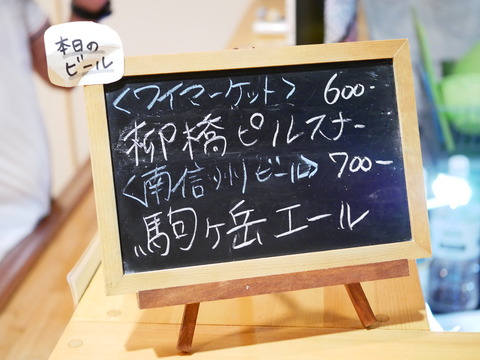 本日の
ビール
〈ワイマーケット〉 600-
柳橋ピルスナー
〈南信州ビール〉 700-
駒ヶ岳エール